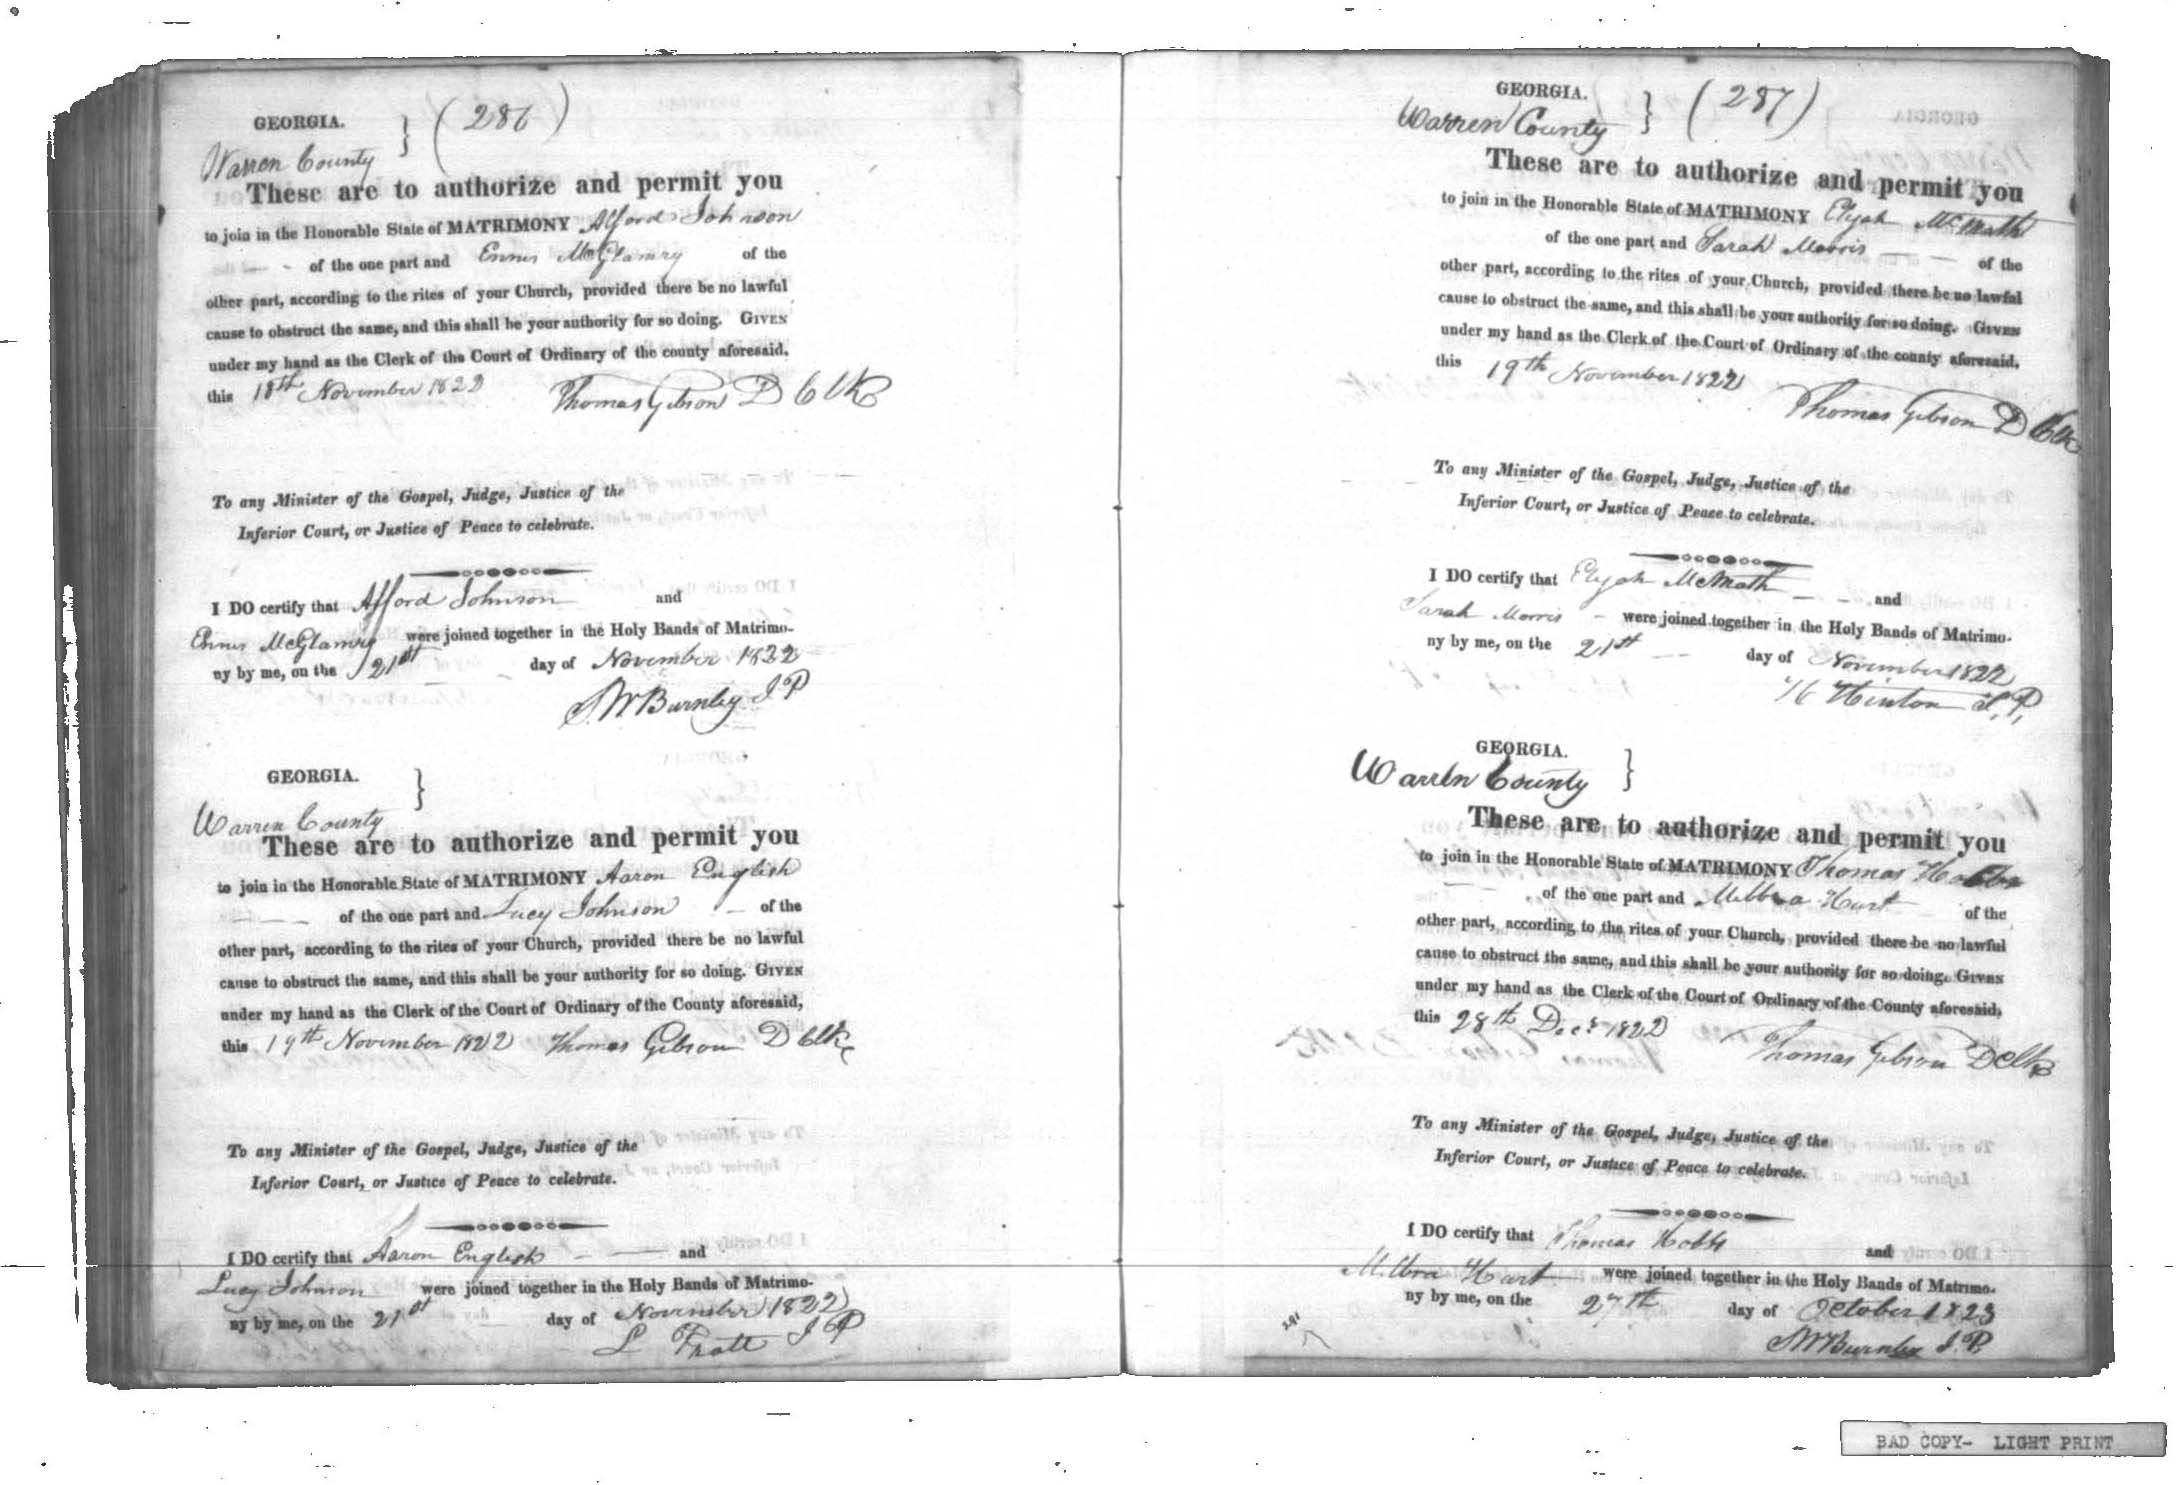 GEORGIA. } (286)
Warren County
These are to authorize and permit you
to join in the Honorable State of MATRIMONY Alford Johnson
of the one part and Ennis McGlamry of the
other part, according to the rites of your Church, provided there be no lawful
cause to obstruct the same, and this shall be your authority for so doing. GIVEN
under my hand as the Clerk of the Court of Ordinary of the county aforesaid,
this 18th November 1822 Thomas Gibson D Clk
To any Minister of the Gospel, Judge, Justice of the
Inferior Court, or Justice of Peace to celebrate.
I DO certify that Alford Johnson and
Ennis McGlamry were joined together in the Holy Bands of Matrimo-
ny by me, on the 21st day of November 1822
S W Burnley J P
GEORGIA. }
Warren County
These are to authorize and permit you
to join in the Honorable State of MATRIMONY Aaron English
of the one part and Lucy Johnson of the
other part, according to the rites of your Church, provided there be no lawful
cause to obstruct the same, and this shall be your authority for so doing. GIVEN
under my hand as the Clerk of the Court of Ordinary of the County aforesaid,
this 19th November 1822 Thomas Gibson D Clk
To any Minister of the Gospel, Judge, Justice of the
Inferior Court, or Justice of Peace to celebrate.
I DO certify that Aaron English and
Lucy Johnson were joined together in the Holy Bands of Matrimo-
ny by me, on the 21st day of November 1822
L Pratt J P
GEORGIA. } (287)
Warren County
These are to authorize and permit you
to join in the Honorable State of MATRIMONY Elijah McMath
of the one part and Sarah Morris of the
other part, according to the rites of your Church, provided there be no lawful
cause to obstruct the same, and this shall be your authority for so doing. GIVEN
under my hand as the Clerk of the Court of Ordinary of the county aforesaid,
this 19th November 1822
Thomas Gibson D Clk
To any Minister of the Gospel, Judge, Justice of the
Inferior Court, or Justice of Peace to celebrate.
I DO certify that Elijah McMath and
Sarah Morris were joined together in the Holy Bands of Matrimo-
ny by me, on the 21st day of November 1822
H Hinton J. P.
GEORGIA. }
Warren County
These are to authorize and permit you
to join in the Honorable State of MATRIMONY Thomas Hobbs
of the one part and Hart of the
other part, according to the rites of your Church, provided there be no lawful
cause to obstruct the same, and this shall be your authority for so doing. GIVEN
under my hand as the Clerk of the Court of Ordinary of the County aforesaid,
this 28th Decr 1822
Thomas Gibson D Clk
To any Minister of the Gospel, Judge, Justice of the
Inferior Court, or Justice of Peace to celebrate.
I DO certify that Thomas Hobbs and
Hart were joined together in the Holy Bands of Matrimo-
ny by me, on the 27th day of October 1823
S W Burnley J. P.
BAD COPY- LIGHT PRINT